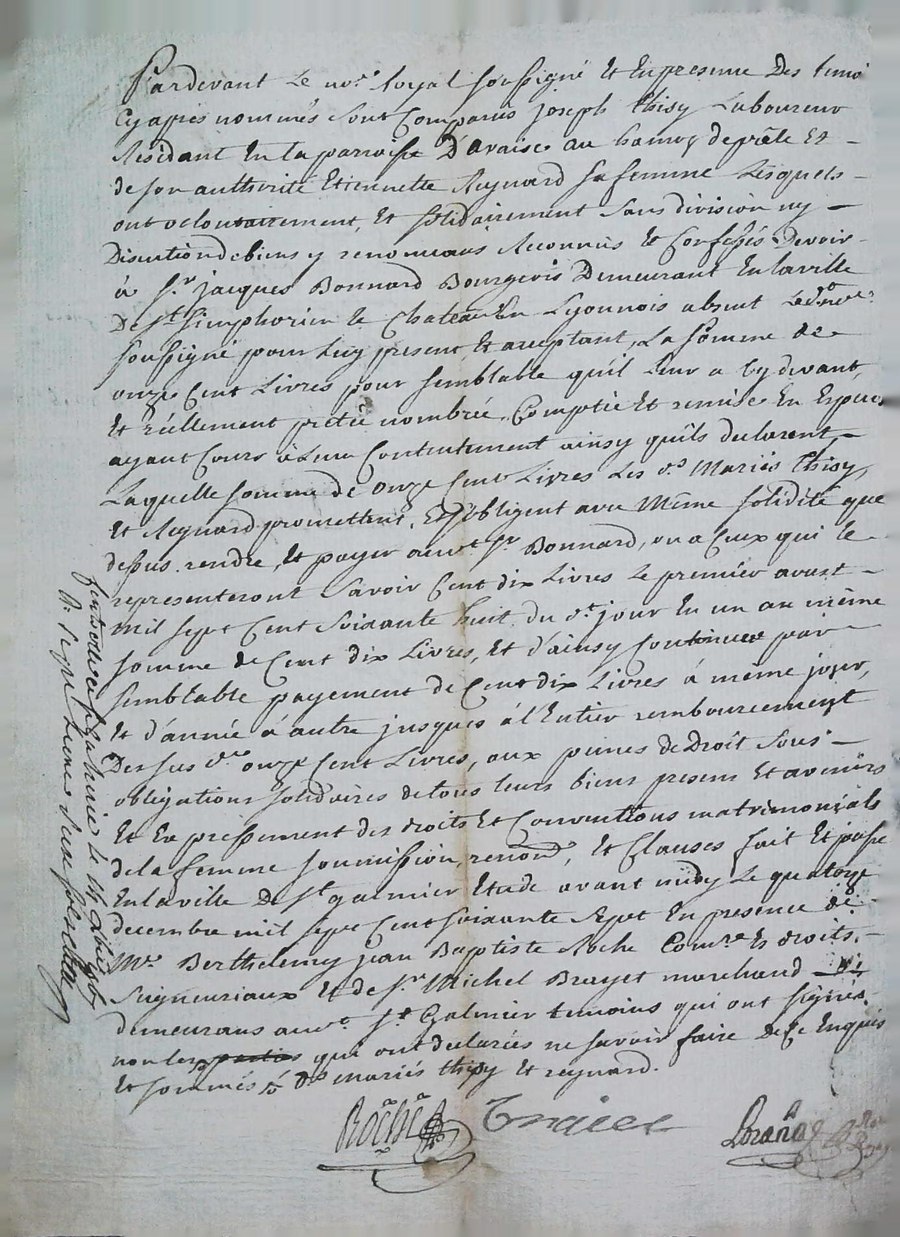 Pardevant Le nore Royal soussigné Et En presence Des temo
Cy après nommés sont Comparus joseph thisy Laboureur
Résidant En la parroisse D'avaise au hameau de prêle Et
de son authorité Etiennette Reynard sa femme Lesquels
ont volontairement, Et solidairement sans division ny
Discution de biens y renonceans Reconnus Et Confessés Devoir
à Sr jacques Bonnard Bourgeois Demeurant En la ville
De St Simphorien le Chateau En Lyonnois absent Led nore
soussigné pour Luy present, Et acceptant, La somme de
onze Cent Livres pour semblable quil Leur a Cy devant,
Et réellement pretée nombrée, Comptée Et remise En Especes
ayant Cours à Leur Contentement ainsy quils declarent,
Laquelle somme de onze Cent Livres Les ds Mariés thisy,
Et Reynard promettent, Et s'obligent avec Même solidité que
dessus rendre, Et payer audt Sr Bonnard, ou a Ceux qui le
representeront savoir Cent dix Livres Le premier avust
mil sept Cent soixante huit du dt jour En un an même
somme de Cent dix Livres, Et d'ainsy Continuer par
semblable payement de Cent dix Livres à même jour,
Et d'année à autre jusques à l'Entier rembourcement
Des sus des onze Cent Livres, aux peines de Droit sous
obligations solidaires de tous leurs biens presens Et avenirs
Et Expressement des droits Et Conventions matrimonials
de la femme soumission, renond, Et Clauses fait Et passé
En la ville De St galmier Etude avant midy Le quatorze
decembre mil sept Cent soixante sept En presence de
Me Berthelemy jean Baptiste Roche Comre Es droits
Seigneuriaux Et de Sr Michel Brayet marchand
demeurans audt St Galmier temoins qui ont signés
non les parties qui ont declarés ne savoir faire De Ce Enquis
Et sommés ds mariés thisy Et reynard.
Roche